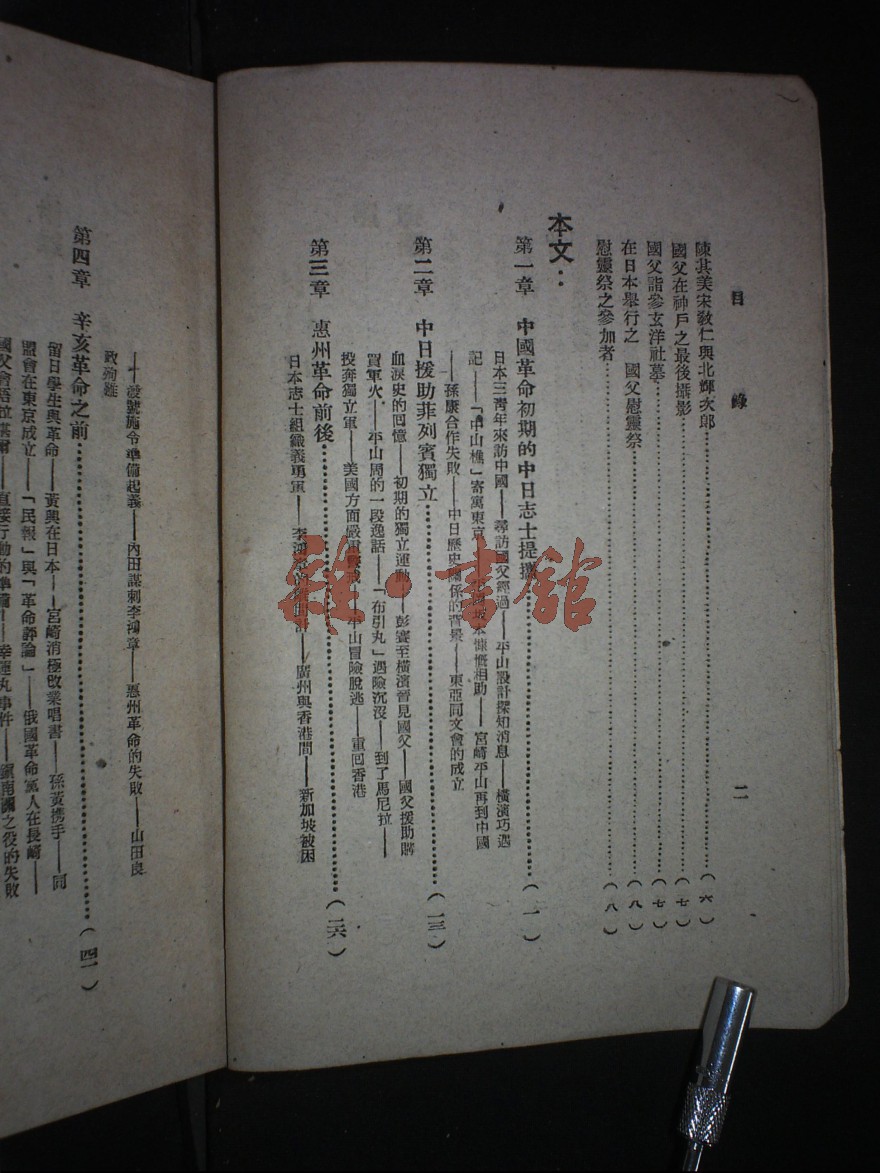 目錄 二
陳其美宋敎仁與北輝次郎……(六)
國父在神戶之最後攝影……(七)
國父詣參玄洋社墓……(七)
在日本舉行之 國父慰靈祭……(八)
慰靈祭之參加者……(八)
本文：
第一章 中國革命初期的中日志士提攜……(一)
日本三靑年來訪中國——尋訪國父經過——平山設計探知消息——橫濱巧遇
記——「中山樵」寄寓東京——慷慨相助——宮崎平山再到中國
——孫康合作失敗——中日歷史關係的背景——東亞同文會的成立
第二章 中日援助菲列賓獨立……(一三)
血淚史的回憶——初期的獨立運動——彭寋至橫濱晉見國父——國父援助購
買軍火——平山周的一段逸話——「布引丸」遇險沉沒——到了馬尼拉——
投奔獨立軍——美國方面嚴重——平山冒險脫逃——重回香港
第三章 惠州革命前後……(二六)
日本志士組織義勇軍——李鴻章的——廣州與香港間——新加坡被困
——發號施令準備起義——內田謀刺李鴻章——惠州革命的失敗——山田良
政殉難
第四章 辛亥革命之前……(四一)
留日學生與革命——黃興在日本——宮崎消極改業唱書——孫黃携手——同
盟會在東京成立——「民報」與「革命評論」——俄國革命黨人在長崎——
國父會晤——直接行動的準備——幸運丸事件——鎭南關之役的失敗
雜·書館